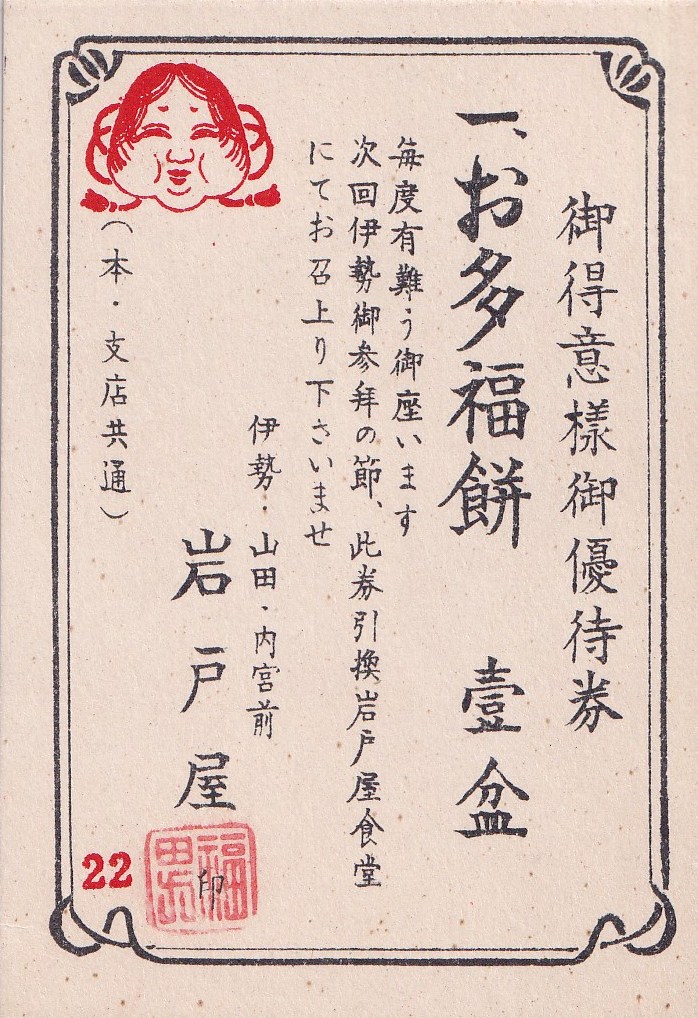 御得意樣御優待券
一、お多福餅 壹盆
毎度有難う御座います
次回伊勢御参拜の節、此券引換岩戸屋食堂
にてお召上り下さいませ
伊勢・山田・内宮前
岩戸屋
印
(本・支店共通)
22